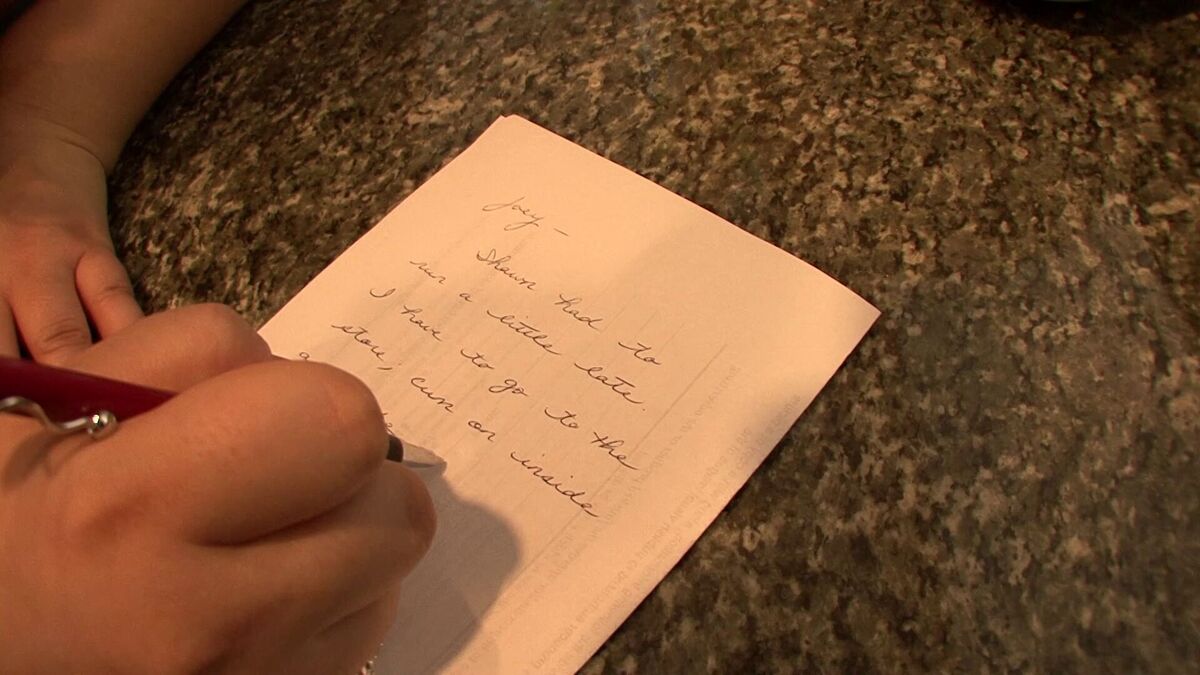 Joey -
Shawn had to
run a little late.
I have to go to the
store, cum on inside
a